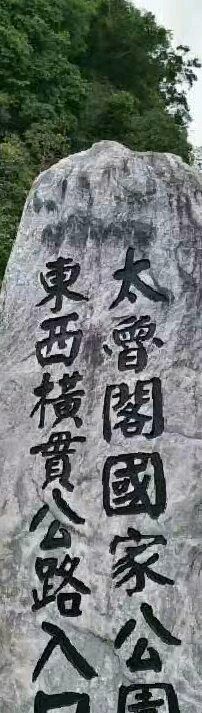 太魯閣國家公園
東西橫貫公路入口